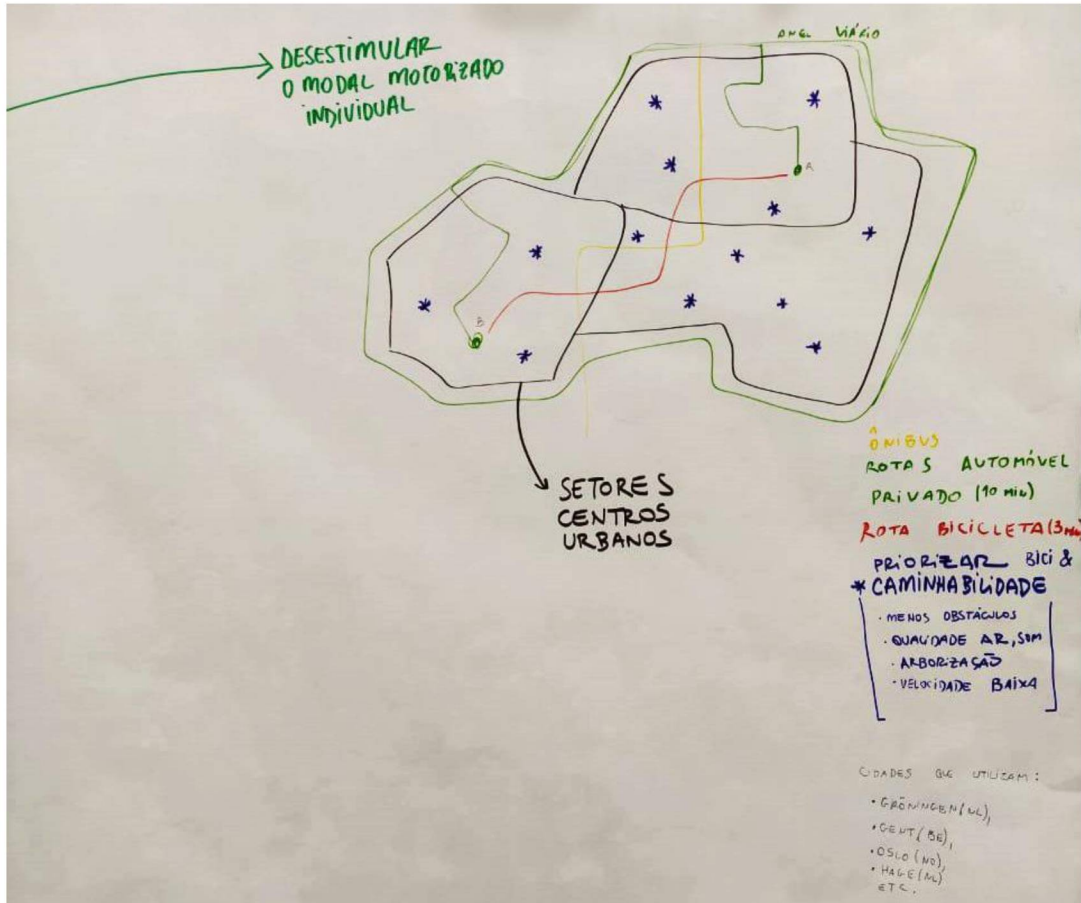 DESESTIMULAR
O MODAL MOTORIZADO
INDIVIDUAL
ANEL VIÁRIO
A
B
SETORES
CENTROS
URBANOS
ÔNIBUS
ROTAS AUTOMÓVEL
PRIVADO (10 min)
ROTA BICICLETA (3 min)
PRIORIZAR BICI &
* CAMINHABILIDADE
· MENOS OBSTÁCULOS
· QUALIDADE AR, SOM
· ARBORIZAÇÃO
· VELOCIDADE BAIXA
CIDADES QUE UTILIZAM:
· GRÖNINGEN (NL),
· GENT (BE),
· OSLO (NO),
· HAGE (NL)
ETC.